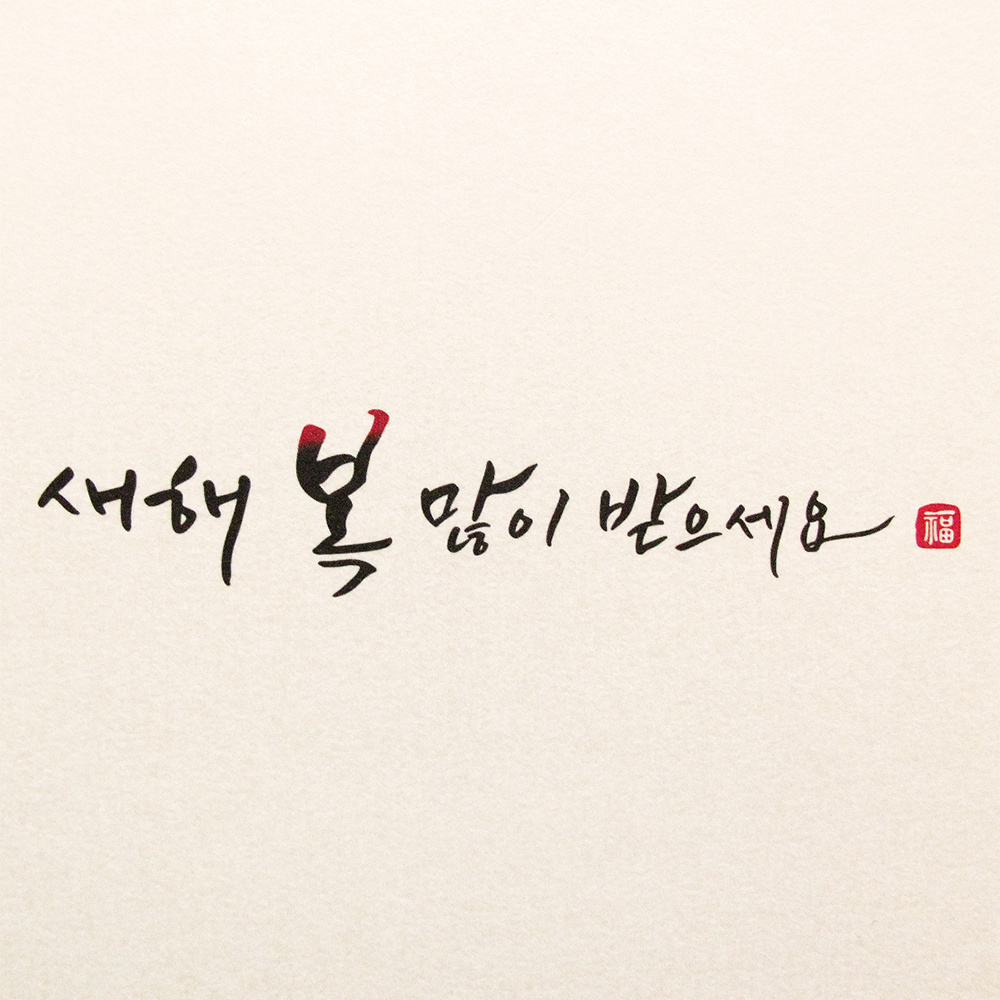 새해 복 많이 받으세요 福